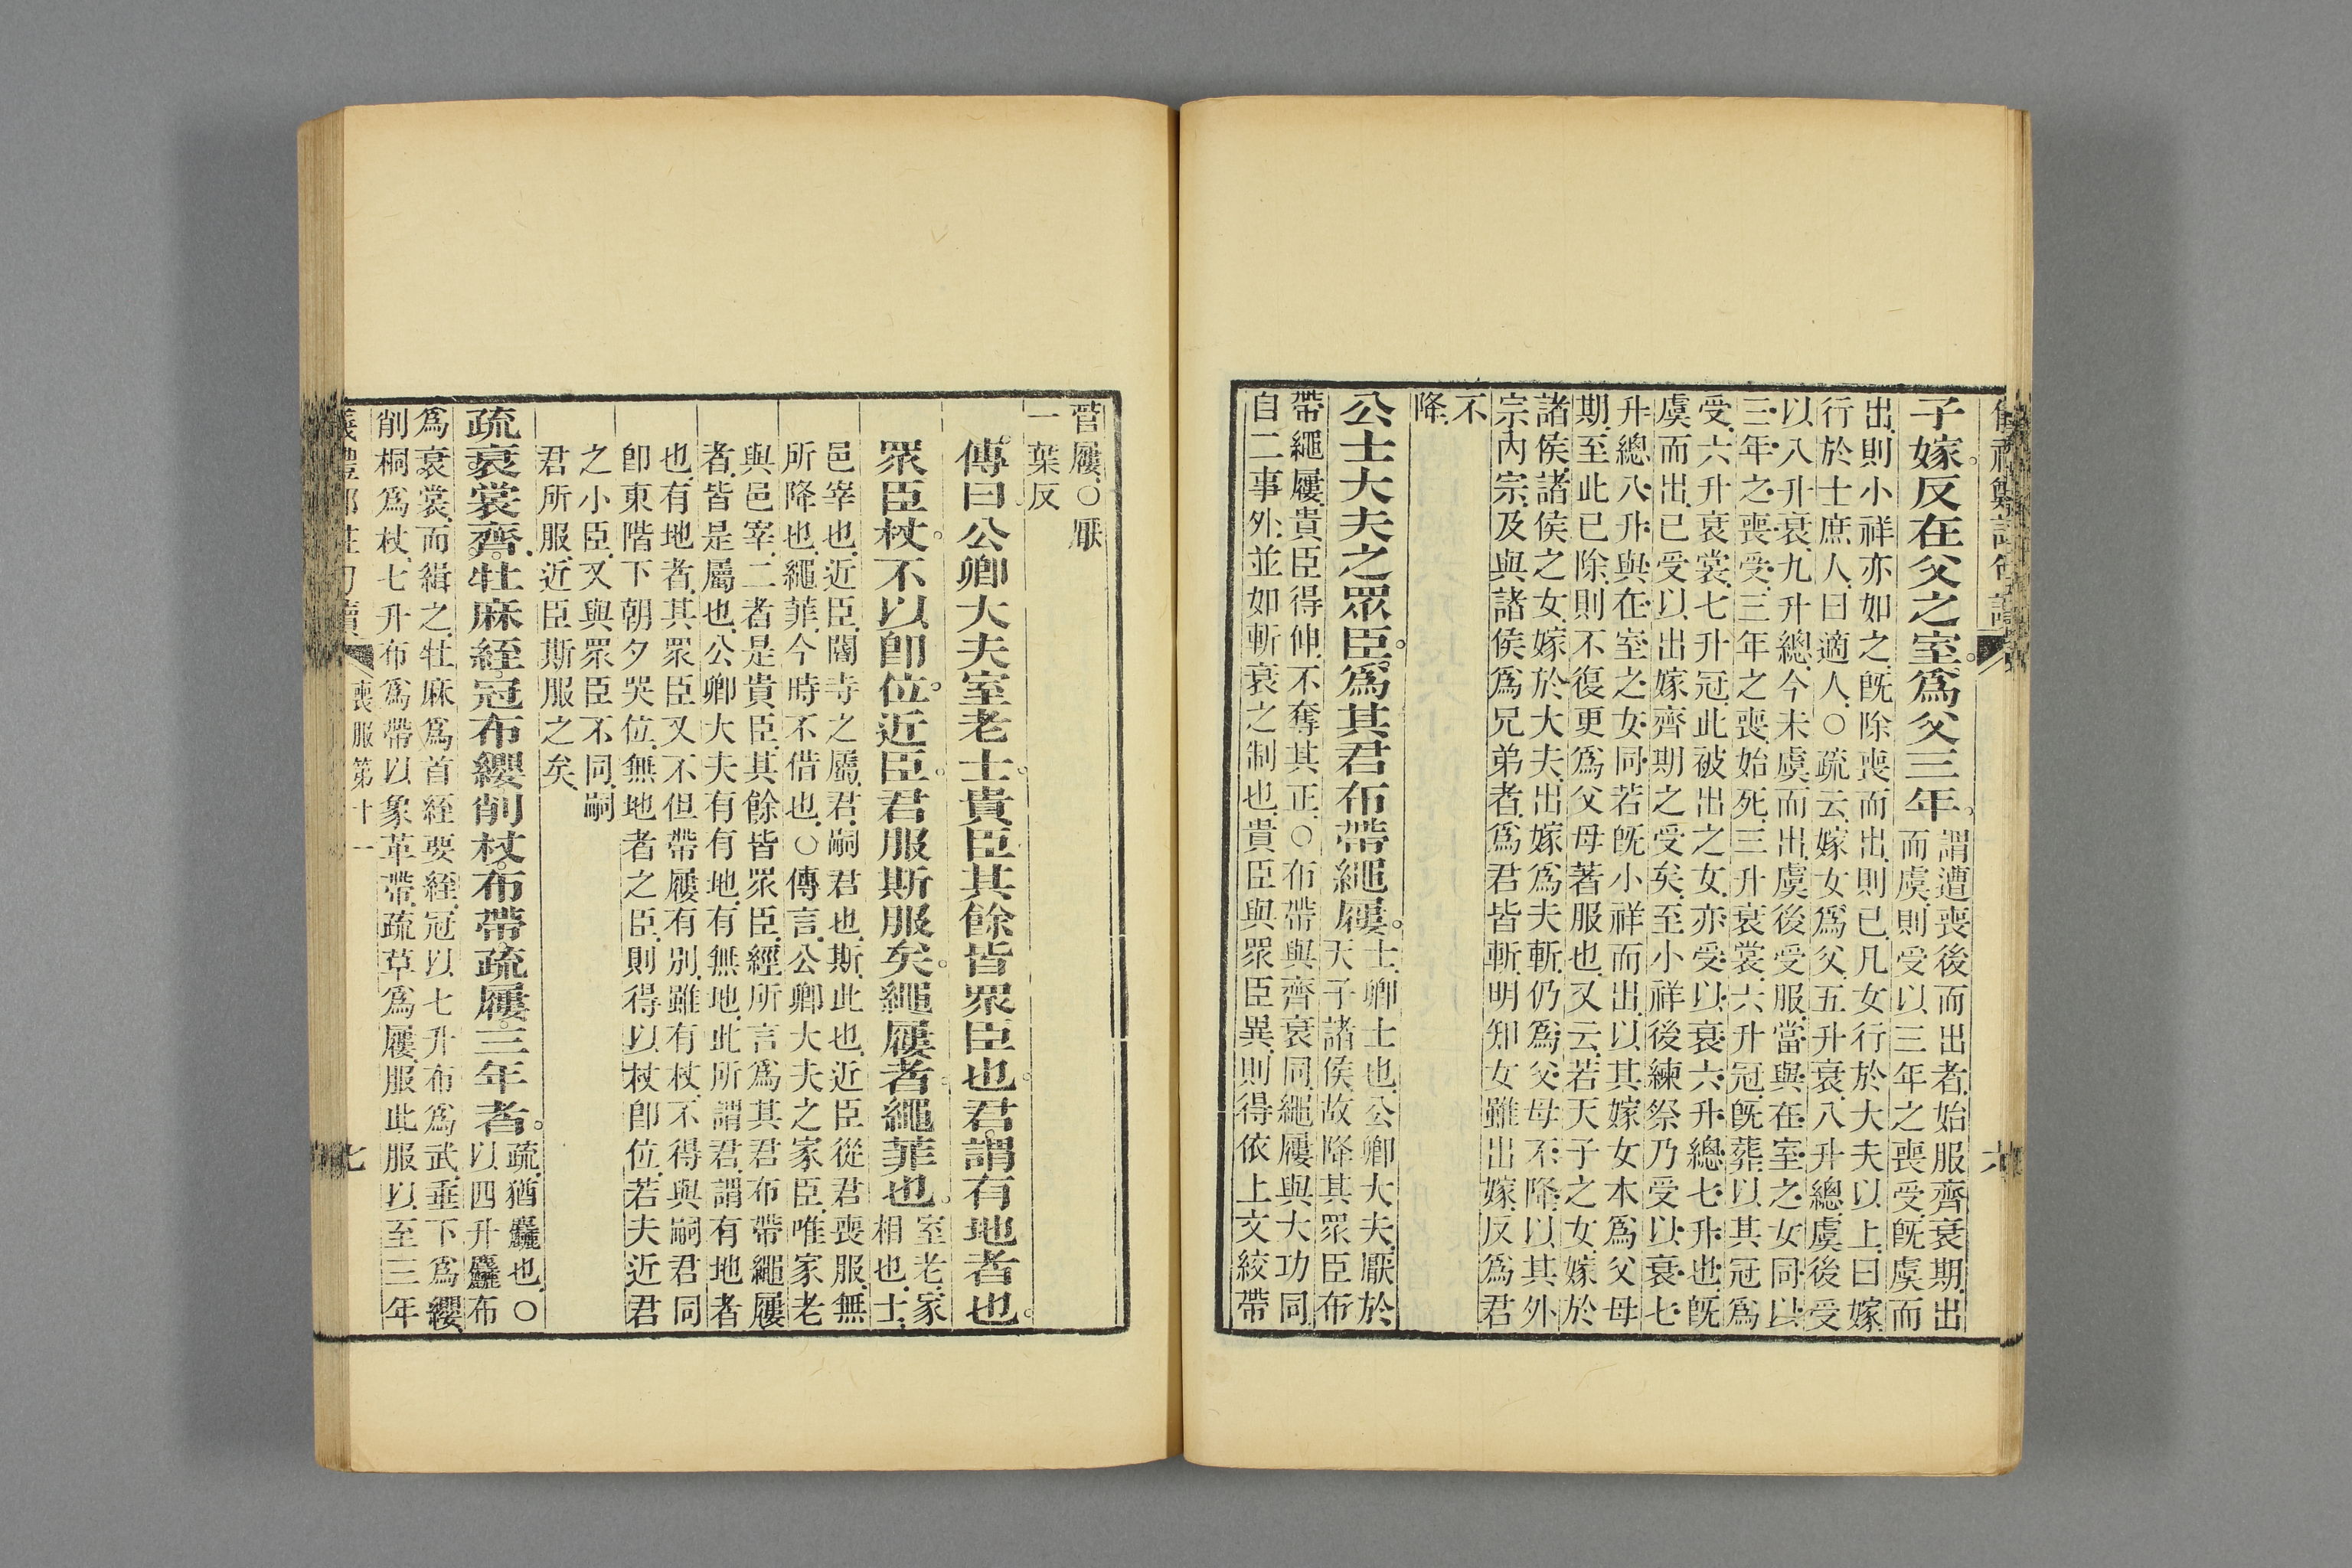 子嫁反在父之室爲父三年
謂遭喪後而出者始服齊衰期出
而虞則受以三年之喪受旣虞而
出則小祥亦如之旣除喪而出則已凡女行於大夫以上曰嫁
行於士庶人曰適人○疏云嫁女爲父五升衰八升總虞後受
以八升衰九升總今未虞而出虞後受服當與在室之女同以
三年之喪受三年之喪始死三升衰裳六升冠旣葬以其冠爲
受六升衰裳七升冠此被出之女亦受以衰六升總七升也旣
虞而出已受以出嫁齊期之受矣至小祥後練祭乃受以衰七
升總八升與在室之女同若旣小祥而出以其嫁女本爲父母
期至此已除則不復更爲父母著服也又云若天子之女嫁於
諸侯諸侯之女嫁於大夫出嫁爲夫斬仍爲父母不降以其外
宗內宗及與諸侯爲兄弟者爲君皆斬明知女雖出嫁反爲君
不
降
公士大夫之眾臣爲其君布帶繩屨
士卿士也公卿大夫厭於
天子諸侯故降其眾臣布
帶繩屨貴臣得伸不奪其正○布帶與齊衰同繩屨與大功同
自二事外並如斬衰之制也貴臣與眾臣異則得依上文絞帶
六
菅屨○厭
一葉反
傳曰公卿大夫室老士貴臣其餘皆眾臣也君謂有地者也
眾臣杖不以卽位近臣君服斯服矣繩屨者繩菲也
室老家
相也士
邑宰也近臣閽寺之屬君嗣君也斯此也近臣從君喪服無
所降也繩菲今時不借也○傳言公卿大夫之家臣唯家老
與邑宰二者是貴臣其餘皆眾臣經所言爲其君布帶繩屨
者皆是屬也公卿大夫有有地有無地此所謂君謂有地者
也有地者其眾臣又不但帶屨有別雖有杖不得與嗣君同
卽東階下朝夕哭位無地者之臣則得以杖卽位若夫近君
之小臣又與眾臣不同嗣
君所服近臣斯服之矣
疏衰裳齊牡麻絰冠布纓削杖布帶疏屨三年者
疏猶麤也○
以四升麤布
爲衰裳而緝之牡麻爲首絰要絰冠以七升布爲武垂下爲纓
削桐爲杖七升布爲帶以象革帶疏草爲屨服此服以至三年
喪服第十一
七